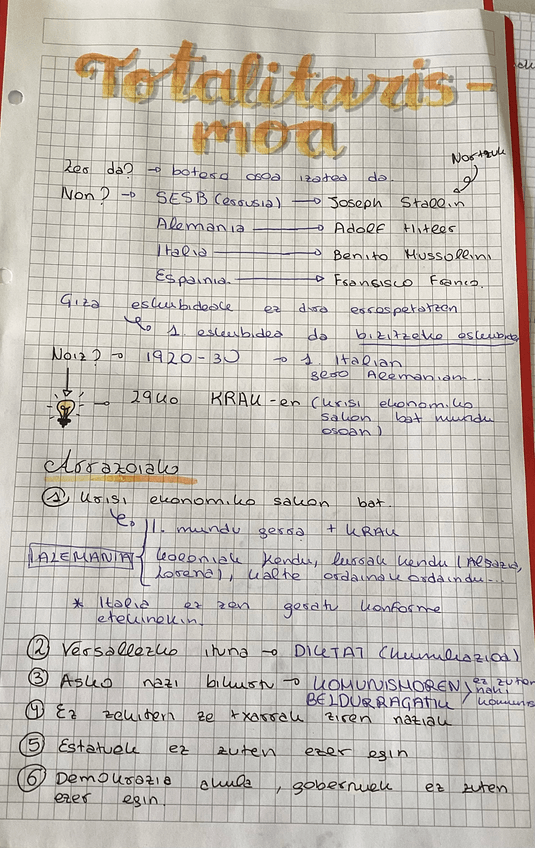 Totalitaris-
moa
Zer da? → boterea osoa izatea da.
Nortzuk
Non? → SESB (errusia) → Joseph Stallin
Alemania → Adolf Hitler
Italia → Benito Mussollini
Espainia. → Fransisco Franco.
Giza eskubideak ez dira errespetatzen
↳ 1. eskubidea da bizitzeko eskubidea
Noiz? → 1920-30 → 1 Italian
gero Alemanian...
→ 29ko KRAK-en (krisi ekonomiko
sakon bat mundu
osoan)
Arrazoiak
① Krisi ekonomiko sakon bat.
↳ I. mundu gerra + KRAK
ALEMANIA { koloniak kendu, lurrak kendu (Alsazia,
Lorena), kalte ordainak ordaindu...
* Italia ez zen geratu konforme
etekinekin.
② Versallezko ituna → DIKTAT (humiliazioa)
③ Asko nazi bihurtu → KOMUNISMOREN
BELDURRAGATIK
ez zuten
nahi
komunis
④ Ez zekiten ze txarrak ziren naziak
⑤ Estatuek ez zuten ezer egin
⑥ Demokrazia ahula, gobernuek ez zuten
ezer egin.